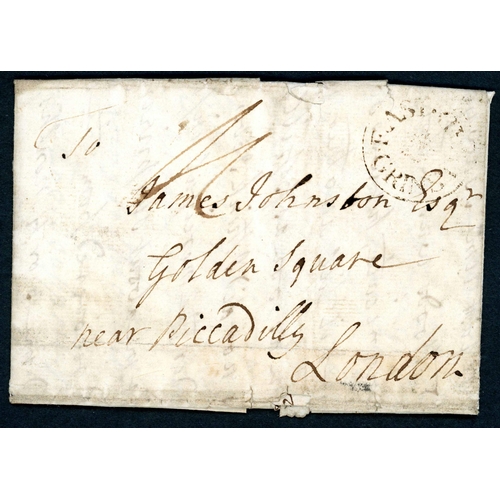 To
James Johnston Esqr
Golden Square
near Piccadilly
London